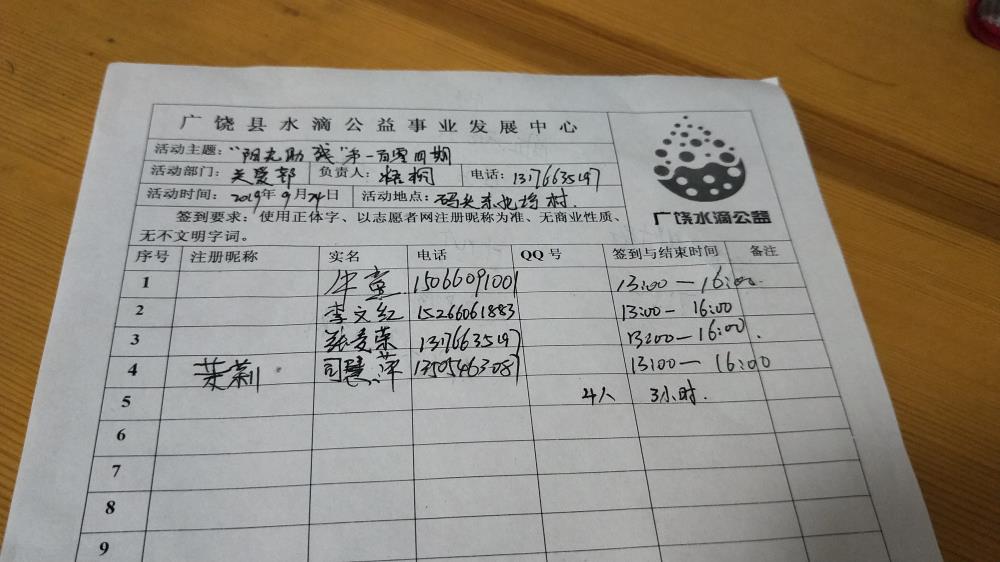 广饶县水滴公益事业发展中心
活动主题：“阳光助残”第一百零四期
活动部门：关爱部 负责人：梧桐 电话：13176635197
活动时间：2019年9月24日 活动地点：码头东北坞村.
签到要求：使用正体字、以志愿者网注册昵称为准、无商业性质、
无不文明字词。
广饶水滴公益
序号 注册昵称 实名 电话 QQ号 签到与结束时间 备注
1 牛童 15066091001 13:00—16:00.
2 李文红 15266061883 13:00-16:00
3 张爱荣 13176635197 13:00-16:00.
4 茉莉 司慧萍 13505463087 13:00—16:00
5 4人 3小时.
6
7
8
9